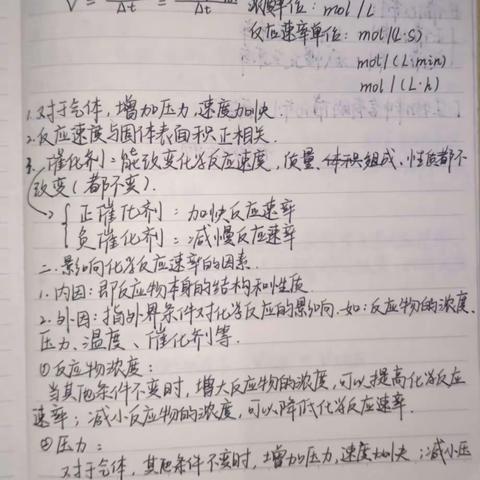 V = — = —
Δt Δt
浓度单位: mol/L
反应速率单位: mol/(L·s)
mol/(L·min)
mol/(L·h)
1.对于气体,增加压力,速度加快.
2.反应速度与固体表面积正相关.
3.催化剂:能改变化学反应速度,质量、体积组成、性质都不
改变(都不变).
正催化剂:加快反应速率
负催化剂:减慢反应速率
二.影响化学反应速率的因素.
1.内因:即反应物本身的结构和性质.
2.外因:指外界条件对化学反应的影响.如:反应物的浓度、
压力、温度、催化剂等.
①反应物浓度:
当其他条件不变时,增大反应物的浓度,可以提高化学反应
速率;减小反应物的浓度,可以降低化学反应速率.
②压力:
对于气体,其他条件不变时,增加压力,速度加快;减小压